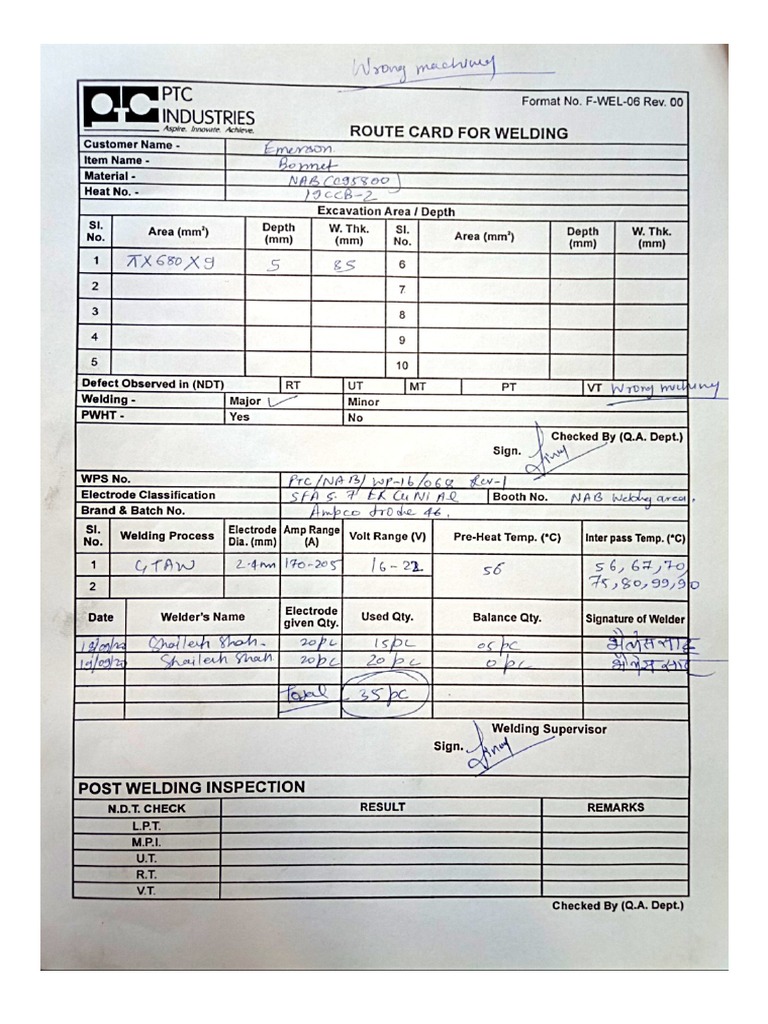 Wrong machining
PTC
INDUSTRIES
Aspire. Innovate. Achieve.
Format No. F-WEL-06 Rev. 00
ROUTE CARD FOR WELDING
Customer Name - Emerson
Item Name - Bonnet
Material - NAB (C95800)
Heat No. - 19CCB-2
Excavation Area / Depth
Sl. No. Area (mm²) Depth (mm) W. Thk. (mm) Sl. No. Area (mm²) Depth (mm) W. Thk. (mm)
1 πX680X9 5 85 6
2 7
3 8
4 9
5 10
Defect Observed in (NDT) RT UT MT PT VT Wrong machining
Welding - Major ✓ Minor
PWHT - Yes No
Checked By (Q.A. Dept.)
Sign.
WPS No. PTC/NAB/WP-16/068 Rev-1
Electrode Classification SFA 5.7 ER CuNiAl Booth No. NAB Welding area.
Brand & Batch No. Ampco trode 46.
Sl. No. Welding Process Electrode Dia. (mm) Amp Range (A) Volt Range (V) Pre-Heat Temp. (°C) Inter pass Temp. (°C)
1 GTAW 2.4mm 170-205 16-22 56 56,67,70,
75,80,99,90
2
Date Welder's Name Electrode given Qty. Used Qty. Balance Qty. Signature of Welder
Shailesh Shah. 20pc 15pc 05pc शैलेस साह
19/09/20 Shailesh Shah 20pc 20pc 0pc शैलेस साह
Total 35pc
Welding Supervisor
Sign.
POST WELDING INSPECTION
N.D.T. CHECK RESULT REMARKS
L.P.T.
M.P.I.
U.T.
R.T.
V.T.
Checked By (Q.A. Dept.)